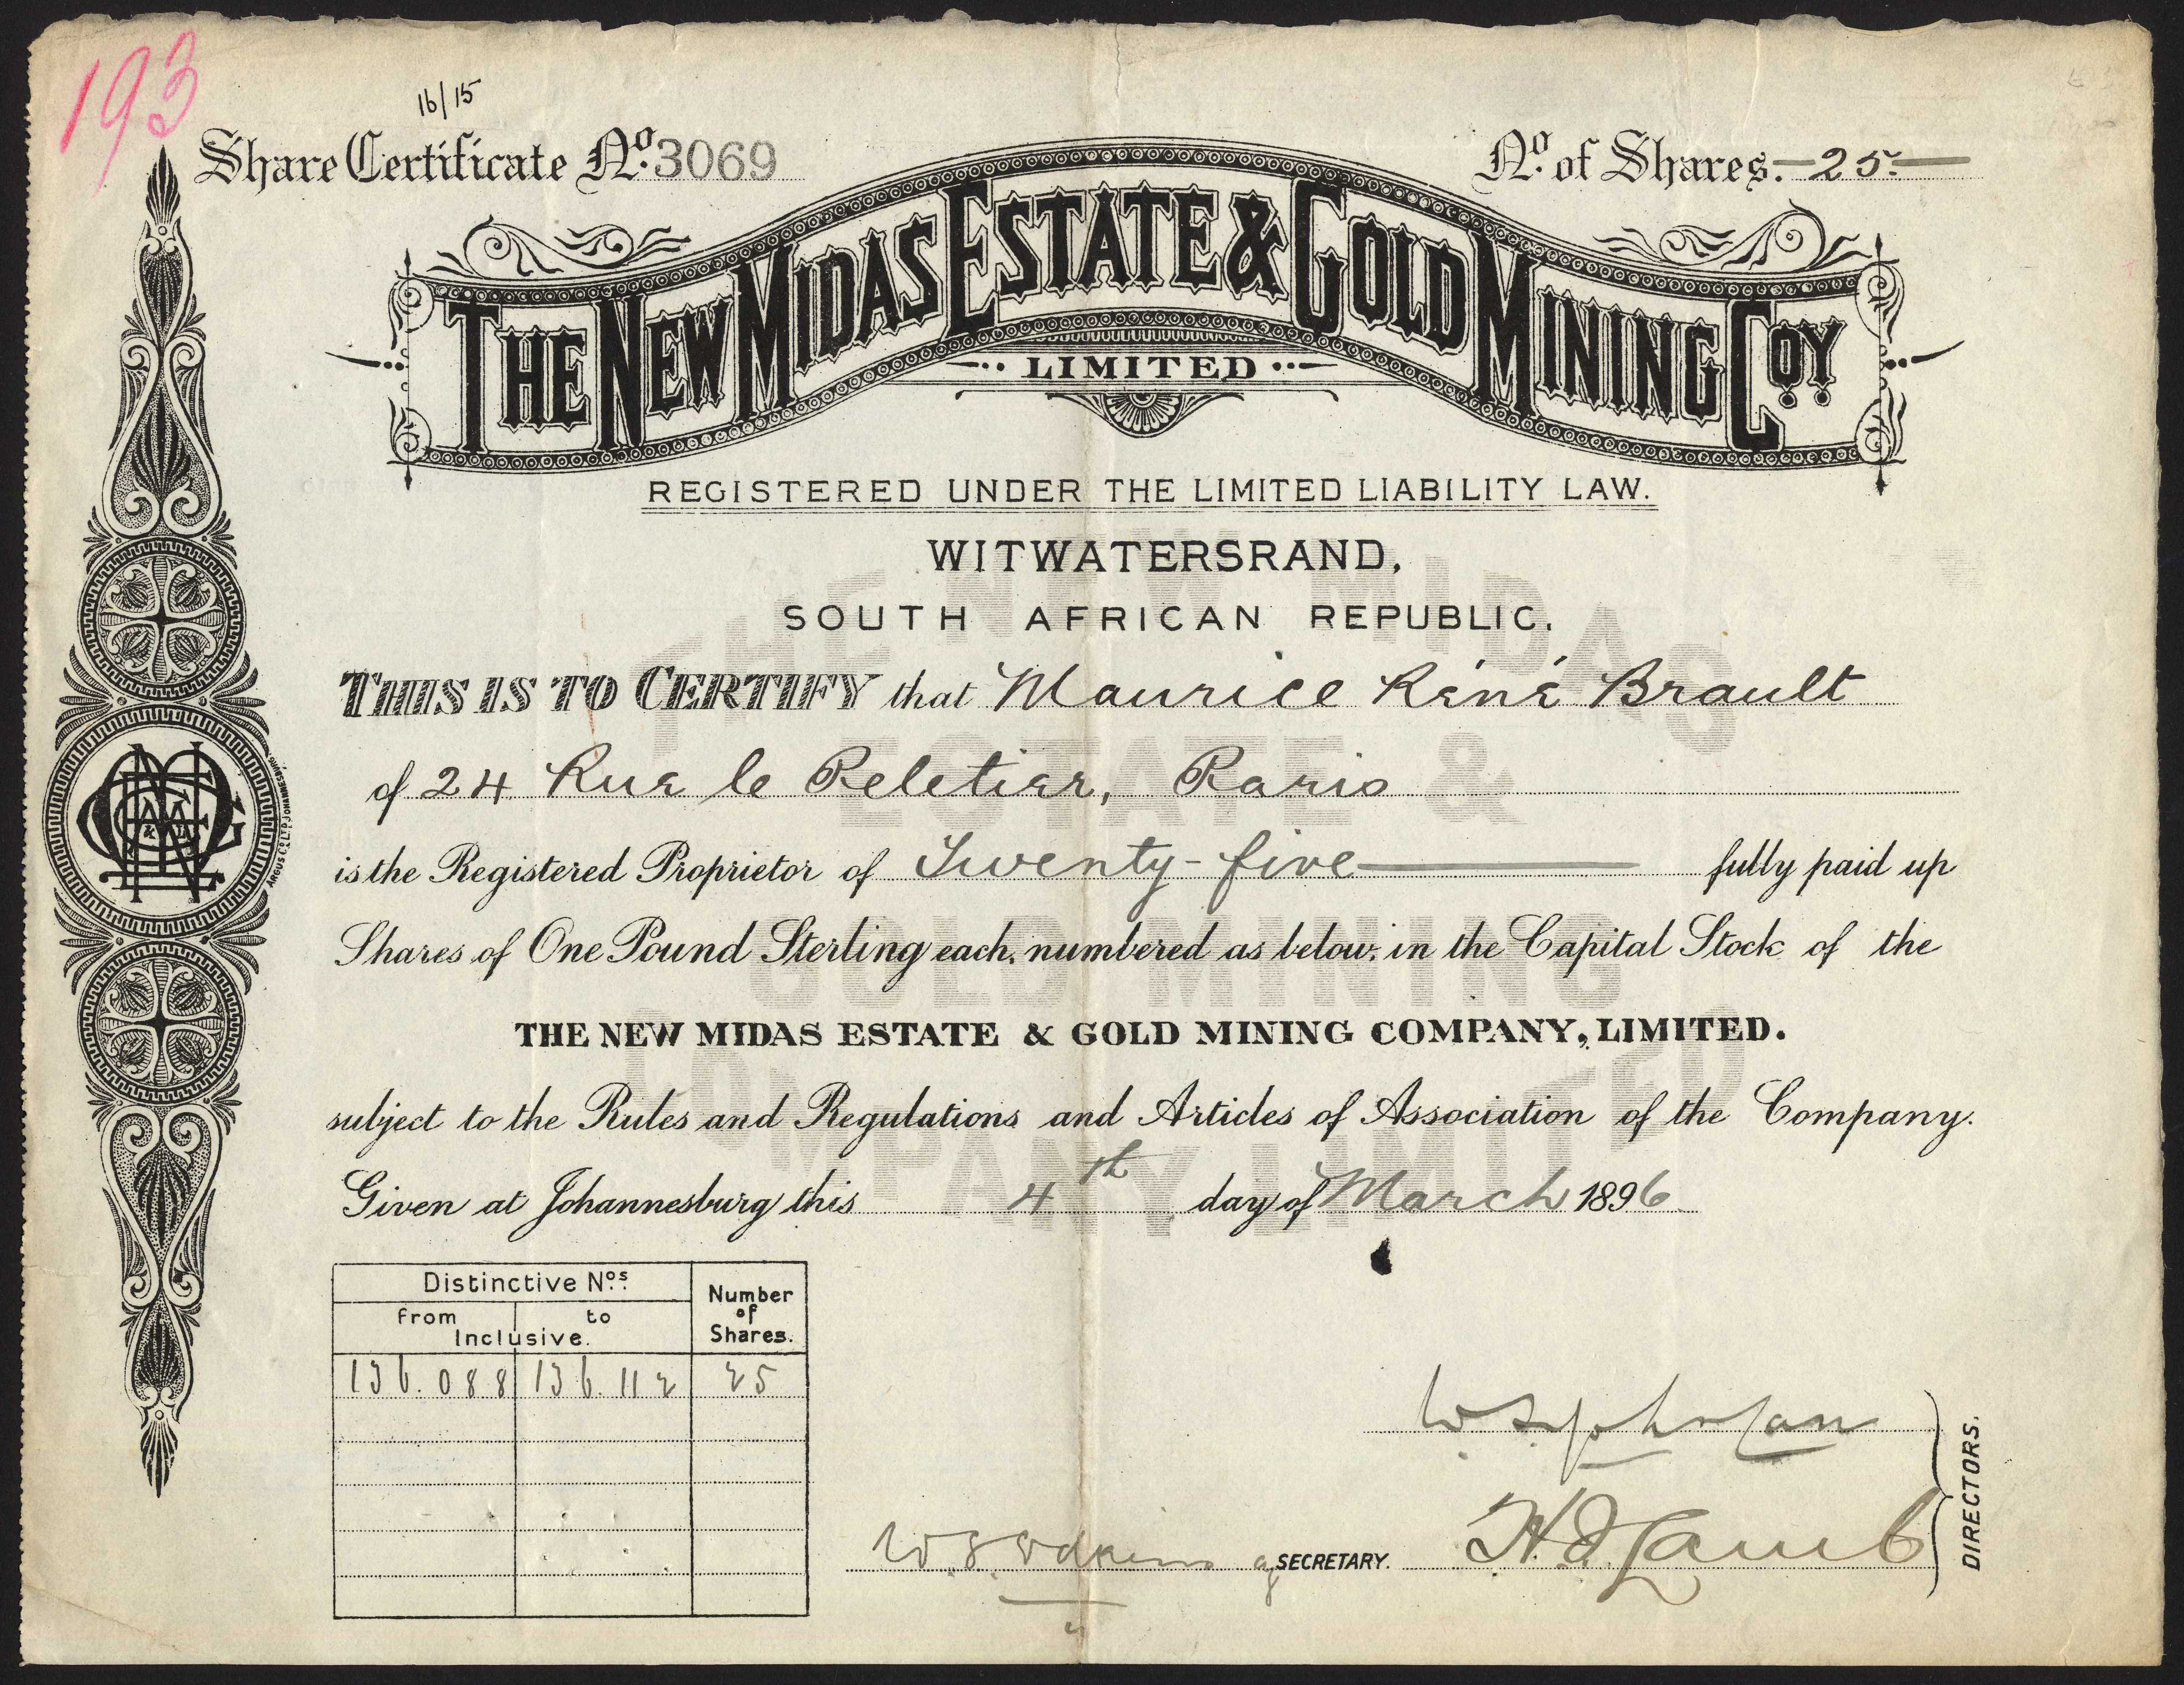 193
16/15
Share Certificate No. 3069
No. of Shares. 25.
THE NEW MIDAS ESTATE & GOLD MINING COY
LIMITED
REGISTERED UNDER THE LIMITED LIABILITY LAW.
WITWATERSRAND,
SOUTH AFRICAN REPUBLIC.
THIS IS TO CERTIFY that Maurice René Brault
of 24 Rue le Peletier, Paris
is the Registered Proprietor of Twenty-five fully paid up
Shares of One Pound Sterling each, numbered as below, in the Capital Stock of the
THE NEW MIDAS ESTATE & GOLD MINING COMPANY, LIMITED.
subject to the Rules and Regulations and Articles of Association of the Company.
Given at Johannesburg this 4th day of March 1896
Distinctive Nos. Number of Shares.
from to
Inclusive.
136.088 136.112 25
SECRETARY.
H. Lamb
DIRECTORS.
ARGUS Co. LTD. JOHANNESBURG.
THE NEW MIDAS
ESTATE &
GOLD MINING
COMPANY LIMITED